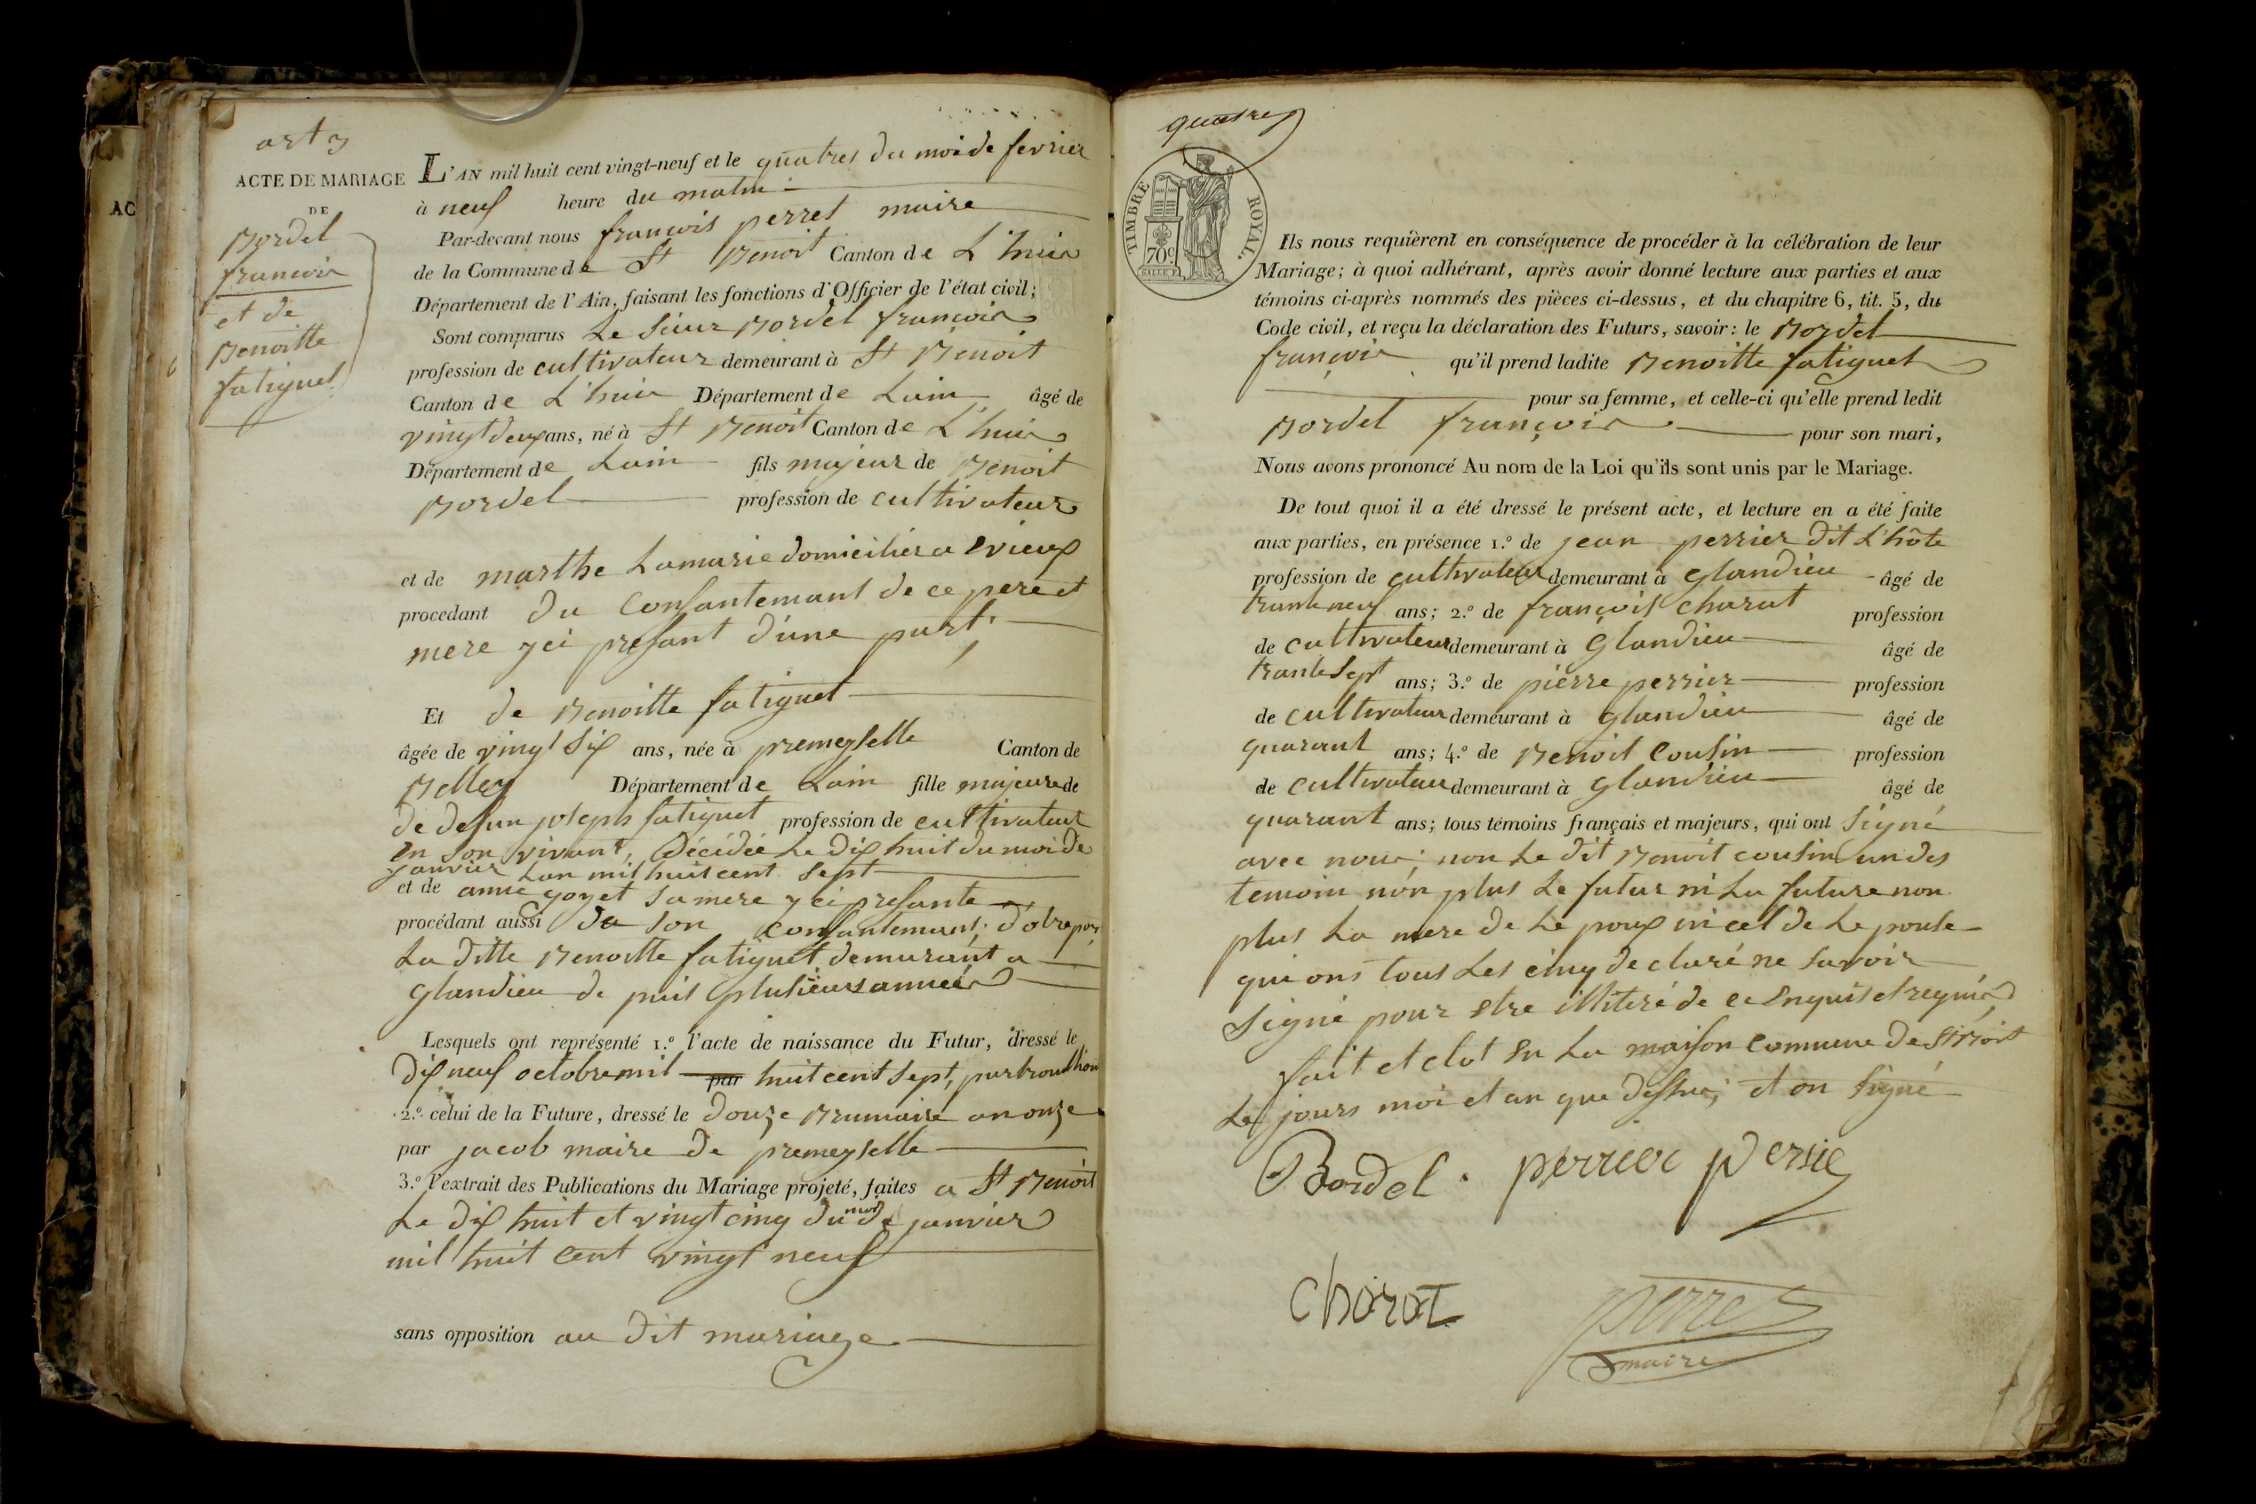 art 3
ACTE DE MARIAGE
DE
Bordel
françois
et de
Benoitte
fatiguet
L'AN mil huit cent vingt-neuf et le quatres du moi de fevrier
à neuf heure du matin
Par-devant nous françois perret maire
de la Commune de St Benoit Canton de L'huis
Département de l'Ain, faisant les fonctions d'Officier de l'état civil;
Sont comparus Le Sieur Bordel françois
profession de cultivateur demeurant à St Benoit
Canton de L'huis Département de Lain âgé de
vingt deux ans, né à St Benoit Canton de L'huis
Département de Lain fils majeur de Benoit
Bordel profession de cultivateur
et de marthe Lamarie domicilier a Evieux
procedant du Consantemant de ce pere et
mere yci presant d'une part;
Et de Benoitte fatiguet
âgée de vingt six ans, née à premeyselle Canton de
Belley Département de Lain fille majeure de
de defun joseph fatiguet profession de cultivateur
en son vivant, décédée Le dix huit du moi de
janvier Lan mil huit cent sept
et de anne goyet sa mere yci presante
procédant aussi de son consantemant; d'otre par
La ditte Benoitte fatiguet demurant a
glandieu de puis plusieurs année
Lesquels ont représenté 1.° l'acte de naissance du Futur, dressé le
dix neuf octobre mil par huit cent sept, par trouilhon
2.° celui de la Future, dressé le douze Brumaire an onze
par jacob maire de premeyselle
3.° l'extrait des Publications du Mariage projeté, faites a St Benoit
Le dix huit et vingt cinq du moi de janvier
mil huit cent vingt neuf
sans opposition au dit mariage
quatre
TIMBRE ROYAL.
70c
Ils nous requièrent en conséquence de procéder à la célébration de leur
Mariage; à quoi adhérant, après avoir donné lecture aux parties et aux
témoins ci-après nommés des pièces ci-dessus, et du chapitre 6, tit. 5, du
Code civil, et reçu la déclaration des Futurs, savoir: le Bordel
françois qu'il prend ladite Benoitte fatiguet
pour sa femme, et celle-ci qu'elle prend ledit
Bordel françois pour son mari,
Nous avons prononcé Au nom de la Loi qu'ils sont unis par le Mariage.
De tout quoi il a été dressé le présent acte, et lecture en a été faite
aux parties, en présence 1.° de jean perrier dit L'hôte
profession de cultivateur demeurant à Glandieu âgé de
trante neuf ans; 2.° de françois charat profession
de cultivateur demeurant à Glandieu âgé de
trante sept ans; 3.° de pierre perrier profession
de cultivateur demeurant à glandieu âgé de
quarant ans; 4.° de Benoit Cousin profession
de cultivateur demeurant à glandieu âgé de
quarant ans; tous témoins français et majeurs, qui ont signé
avec nous; non Le dit Benoit cousin un des
temoin non plus Le futur ni La future non
plus La mere de Le poux ni cel de Le pouse
qui ons tous Les cinq de claré ne savoir
signé pour etre illiteré de ce enquis et requis
fait et clot en La maison commune de St Boit
Le jours moi et an que dessus; et on signé
Bordel. perrier persie
charat
perret
maire